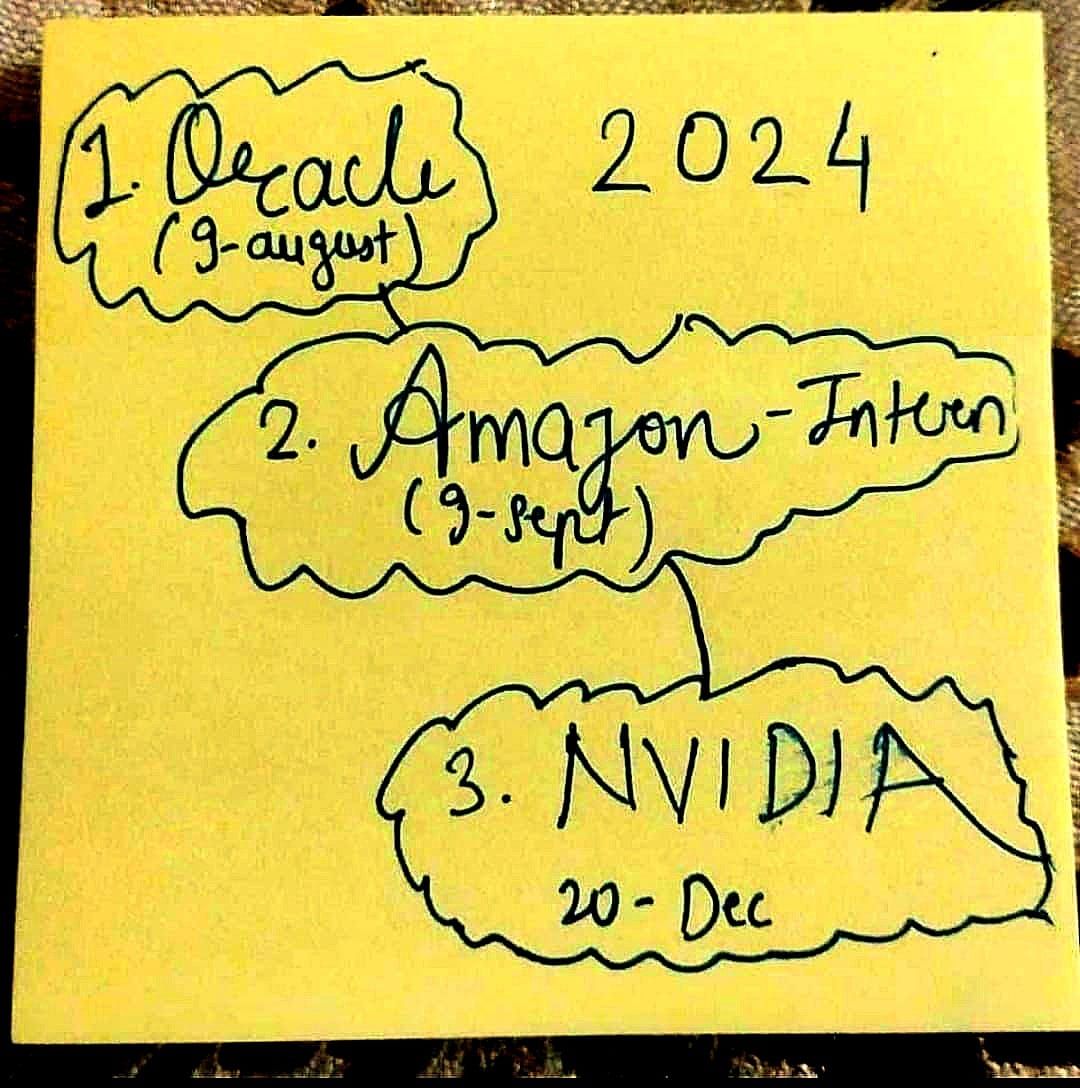 1. Oracle
(9-august)
2024
2. Amazon - Intern
(9-sept)
3. NVIDIA
20 - Dec